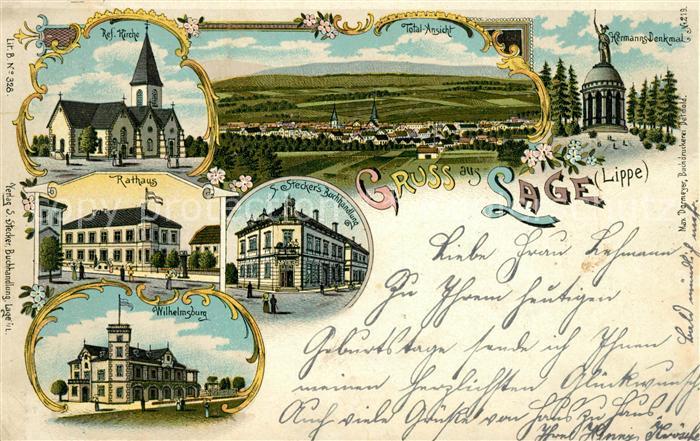 Lit. B. No 328.
Ref. Kirche
Total-Ansicht
No 213.
Hermanns-Denkmal
Rathaus
S. Stecker's Buchhandlung
Gruss aus Lage (Lippe)
Wilhelmsburg
Verlag S. Stecker Buchhandlung Lage i/L.
Max Dürmeyer, Buchdruckerei
Liebe Frau Lehmann
Zu Ihrem heutigen
Geburtstage sende ich Ihnen
meinen herzlichsten Glückwunsch
Auch viele Grüße von Haus zu Haus.
Ihre